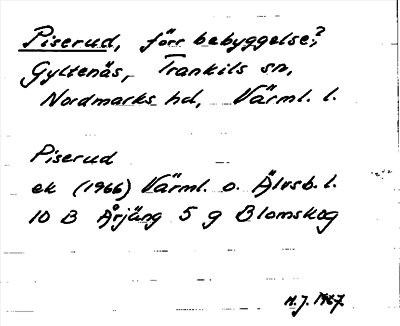 Piserud, förr bebyggelse?
Gyltenäs, Trankils sn,
Nordmarks hd, Värml. l.
Piserud
ek (1966) Värml. o. Älvsb. l.
10 B Årjäng 5 g Blomskog
H.J. 1967